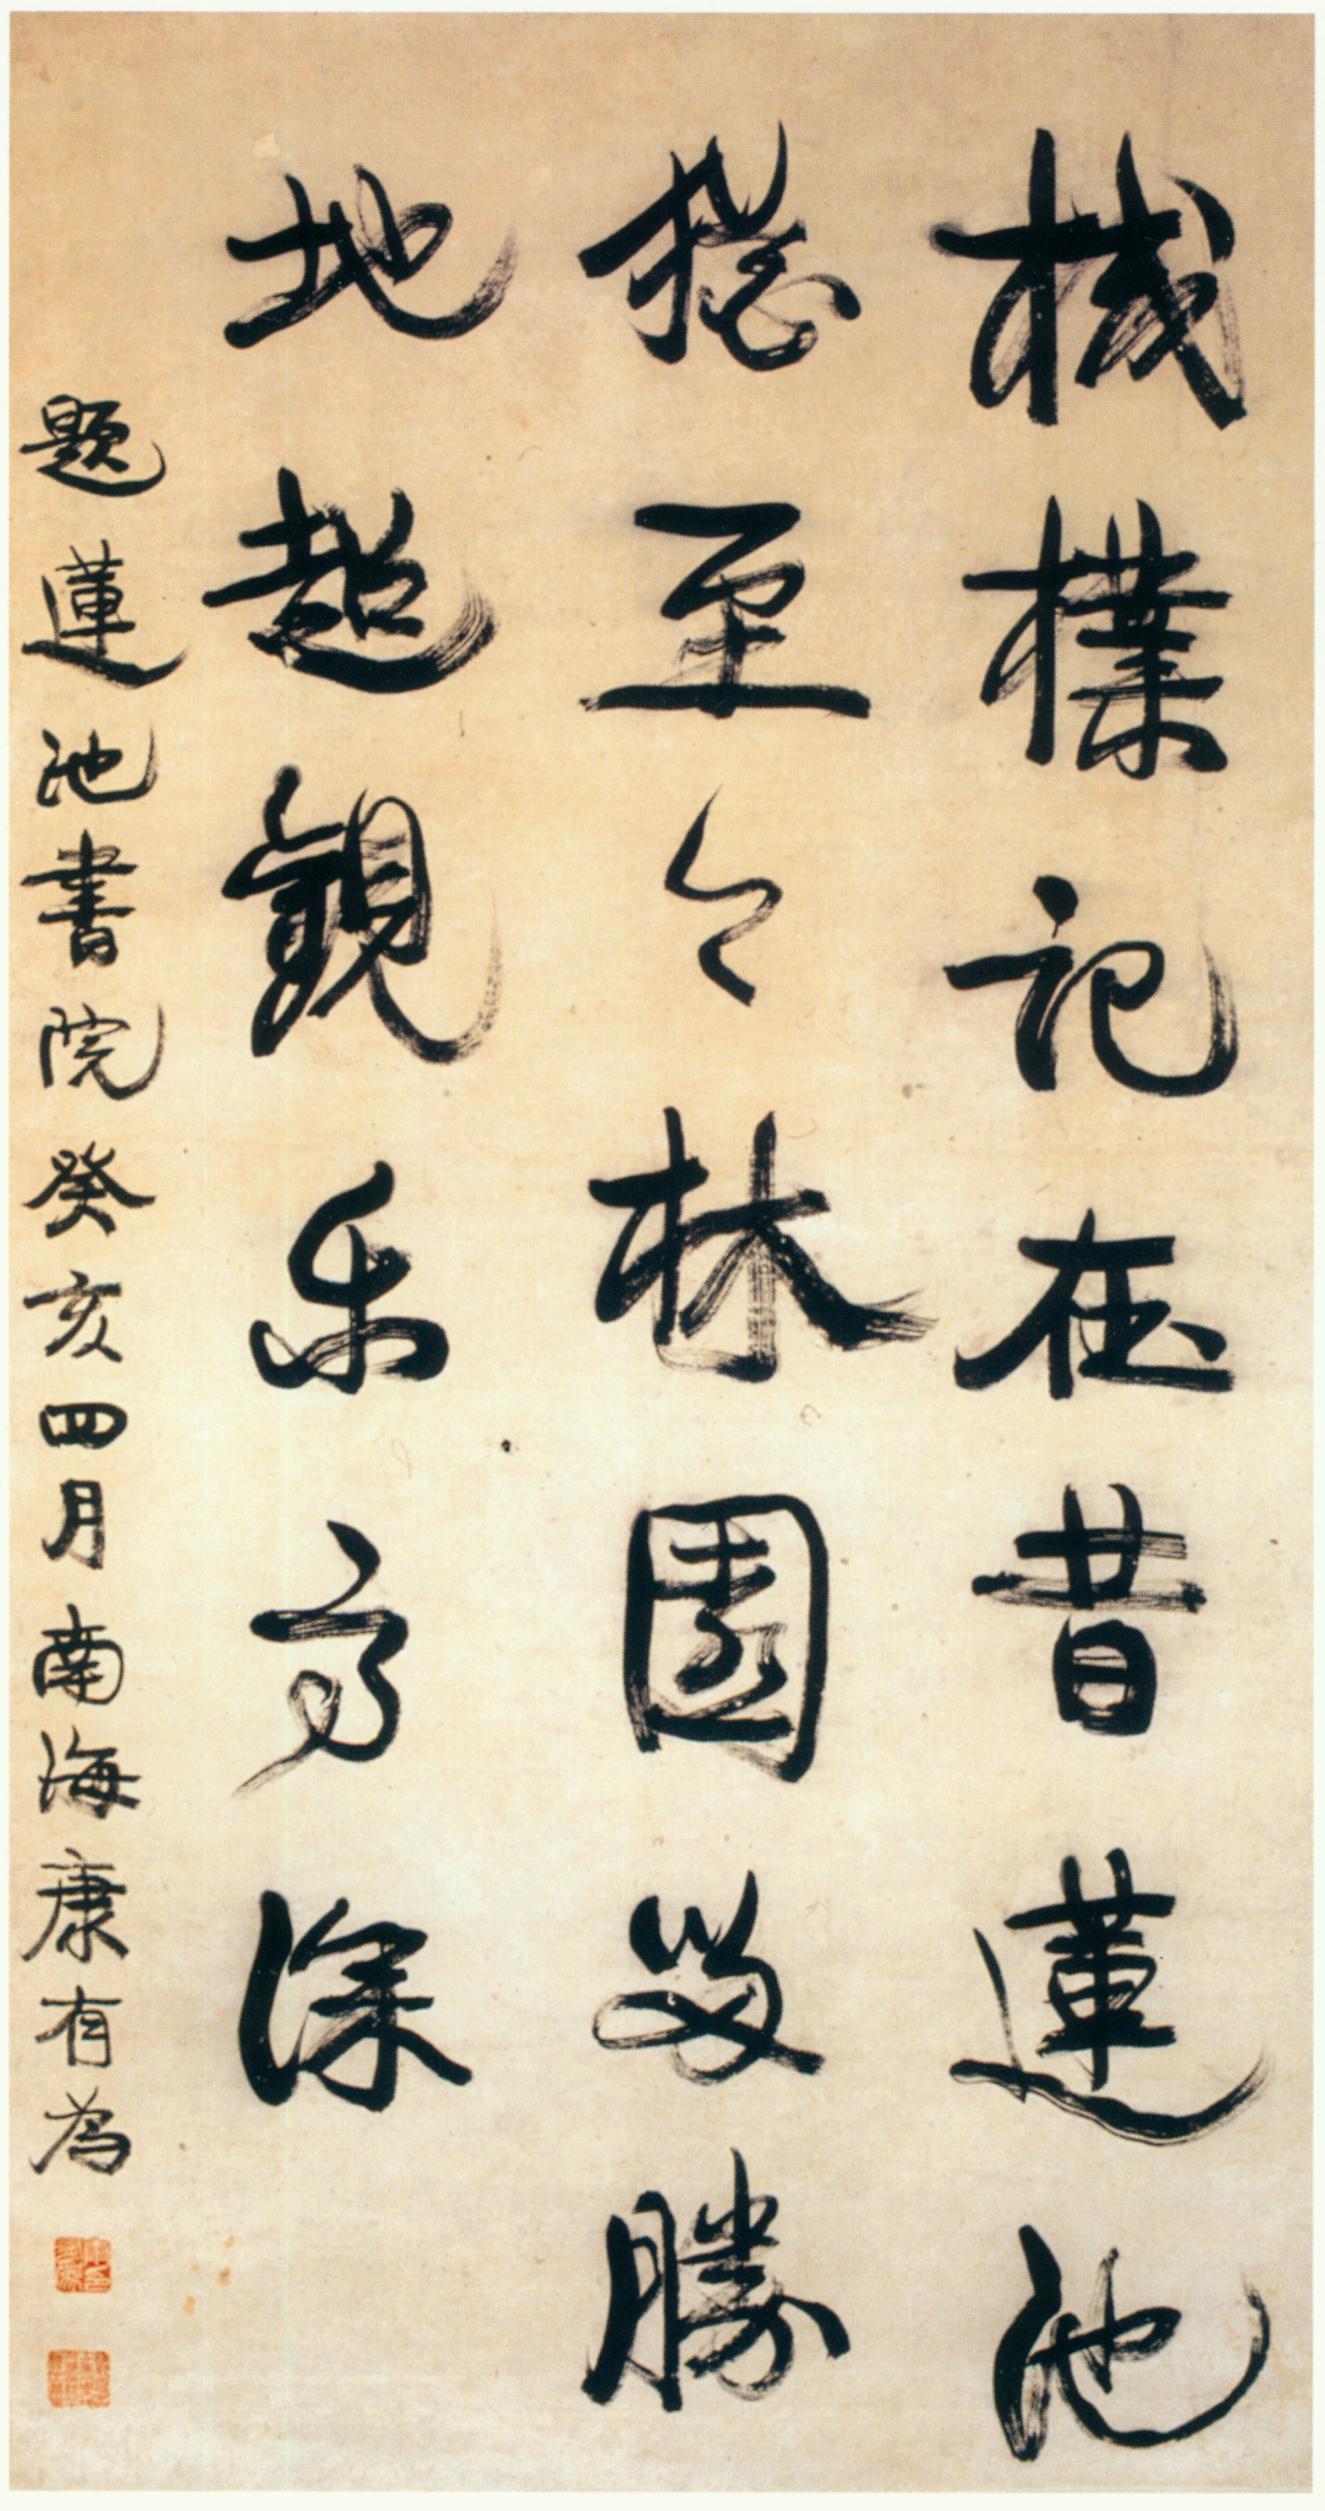 棫樸記在昔蓮池
猶至今林園最勝
地超觀樂高深
題蓮池書院癸亥四月南海康有為